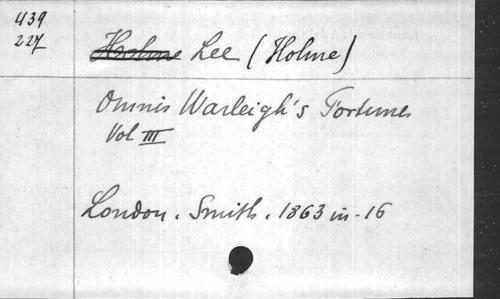 439
227
Holme Lee (Holme)
Annis Warleigh's Fortunes
Vol III
London. Smith. 1863 in-16